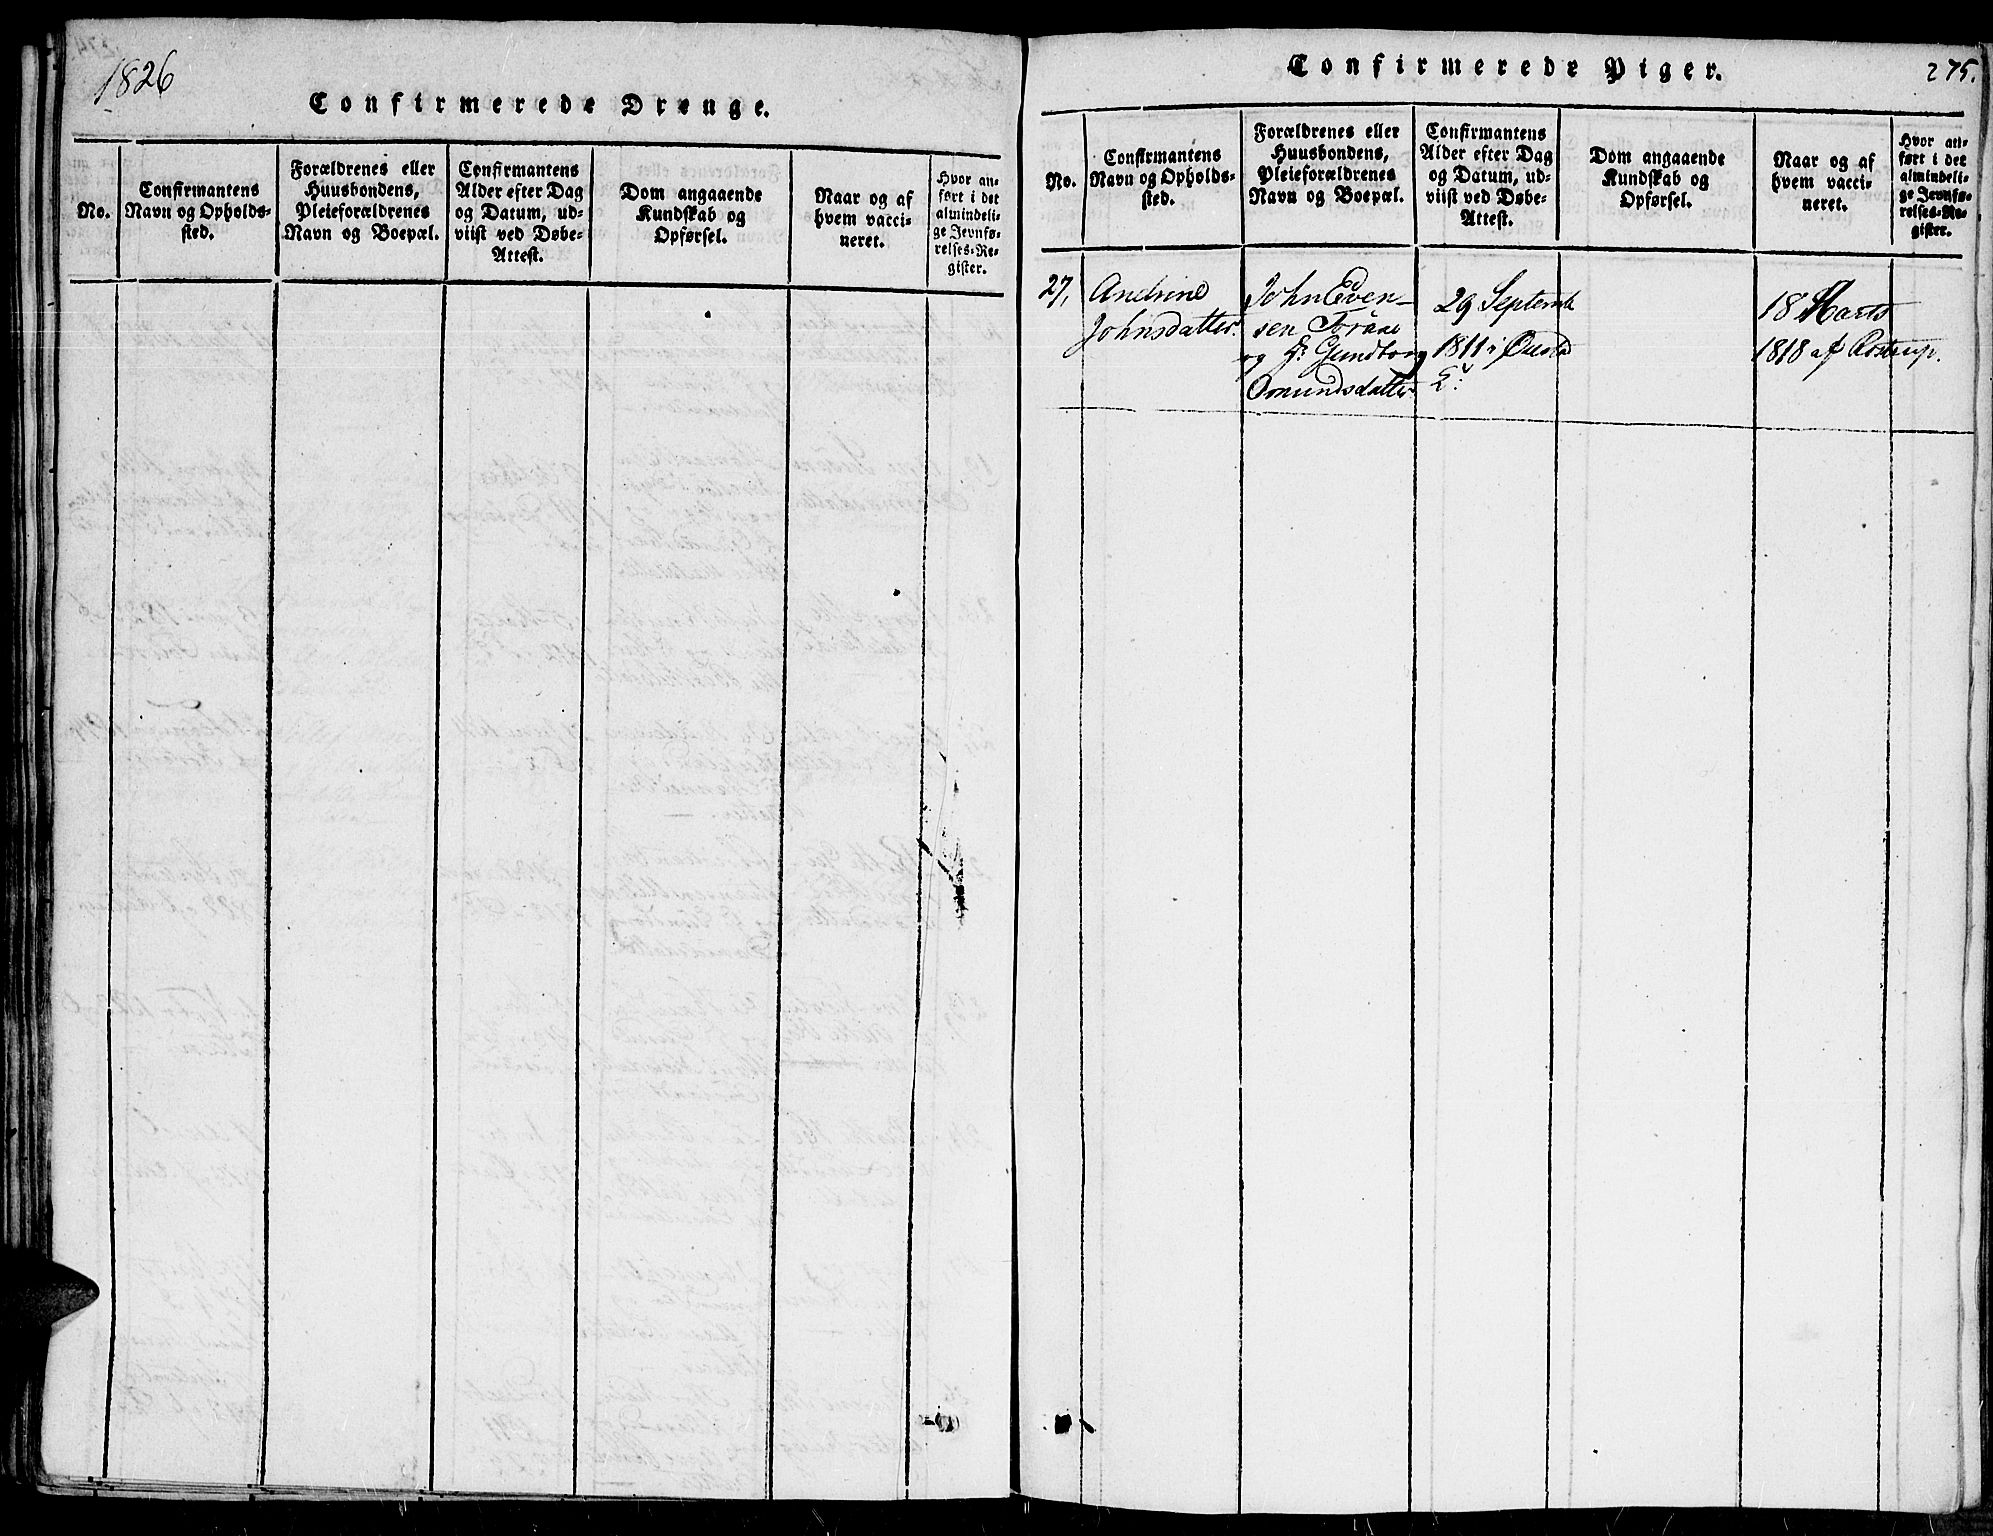 1826
Confirmerede Drenge.
No.
Confirmantens
Navn og Opholds-
sted.
Forældrenes eller
Huusbondens,
Pleieforældrenes
Navn og Boepæl.
Confirmantens
Alder efter Dag
og Datum, ud-
viist ved Døbe-
Attest.
Dom angaaende
Kundskab og
Opførsel.
Naar og af
hvem vacci-
neret.
Hvor an-
ført i det
almindeli-
ge Jevnfø-
relses-Re-
gister.
Confirmerede Piger.
275.
No.
Confirmantens
Navn og Opholds-
sted.
Forældrenes eller
Huusbondens,
Pleieforældrenes
Navn og Boepæl.
Confirmantens
Alder efter Dag
og Datum, ud-
viist ved Døbe-
Attest.
Dom angaaende
Kundskab og
Opførsel.
Naar og af
hvem vacci-
neret.
Hvor an-
ført i det
almindeli-
ge Jevnfø-
relses-Re-
gister.
27,
Andrine
Johnsdatter.
John Even-
sen
og Gundborg
Omundsdatter
29 Septemb
1811 i
18 Marts
1818 af